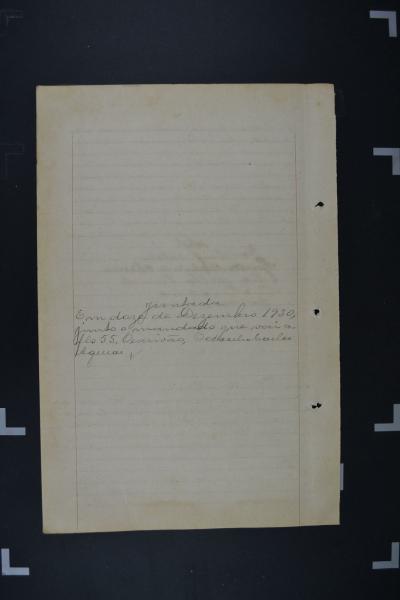 Juntada
Em doze de Dezembro 1930,
junto o mandado que vai a
fls 55. Escrivão,